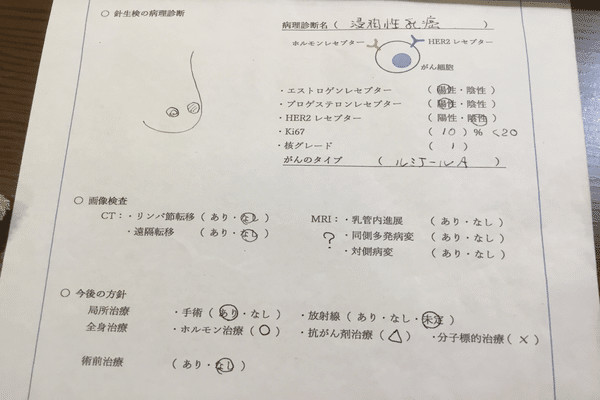 ○ 針生検の病理診断
病理診断名 ( 浸潤性乳癌 )
ホルモンレセプター HER2 レセプター
がん細胞
・エストロゲンレセプター ( 陽性・陰性 )
・プロゲステロンレセプター ( 陽性・陰性 )
・HER2 レセプター ( 陽性・陰性 )
・Ki67 ( 10 ) % <20
・核グレード ( 1 )
がんのタイプ ( ルミナールA )
○ 画像検査
CT:・リンパ節転移 ( あり・なし )
・遠隔転移 ( あり・なし )
MRI:・乳管内進展 ( あり・なし )
? ・同側多発病変 ( あり・なし )
・対側病変 ( あり・なし )
○ 今後の方針
局所治療 ・手術 ( あり・なし ) ・放射線 ( あり・なし・未定 )
全身治療 ・ホルモン治療 ( ○ ) ・抗がん剤治療 ( △ ) ・分子標的治療 ( × )
術前治療 ( あり・なし )